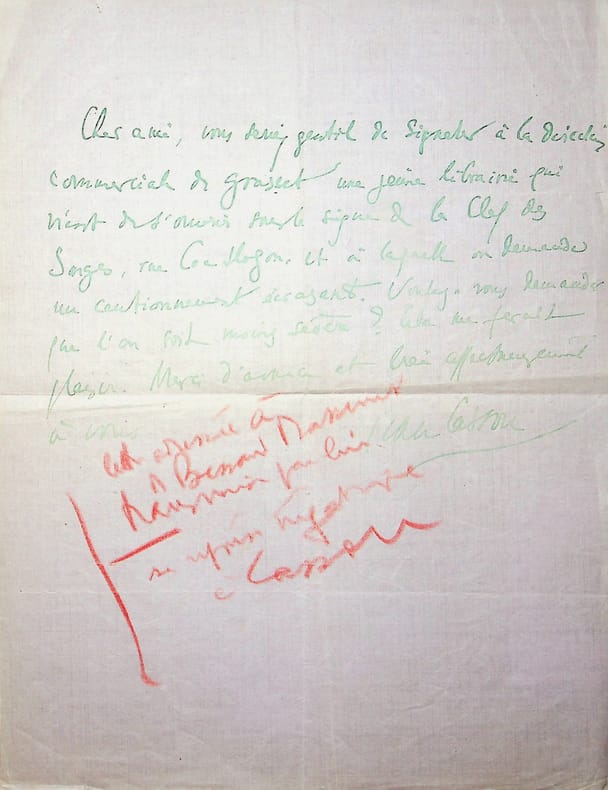 Cher ami, vous seriez gentil de signaler à la direction
commerciale de Grasset une jeune librairie qui
vient de s'ouvrir sous le signe de la Clef des
Songes, rue Coëtlogon, et à laquelle on demande
un cautionnement écrasant. Voulez-vous demander
que l'on soit moins sévère ? Cela me ferait
plaisir. Merci d'avance et bien affectueusement
à vous
Jean Cassou
lettre adressée à
M Bernard
transmise par lui
sa réponse négative
à Cassou